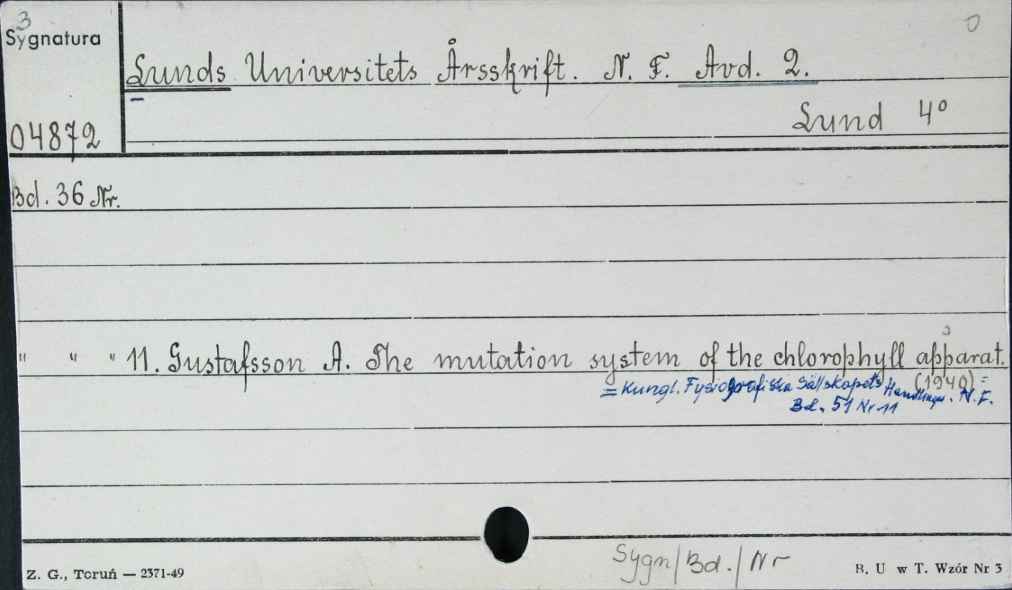 3
Sygnatura
0
Lunds Universitets Årsskrift. N. F. Avd. 2.
04872
Lund 4°
Bd. 36 Nr.
" " " 11. Gustafsson A. The mutation system of the chlorophyll apparat.
(1940) =
= Kungl. Fysiografiska Sällskapets Handlingar. N. F.
Bd. 51 Nr 11
Sygn/Bd./Nr
Z. G., Toruń — 2371-49
B. U w T. Wzór Nr 3